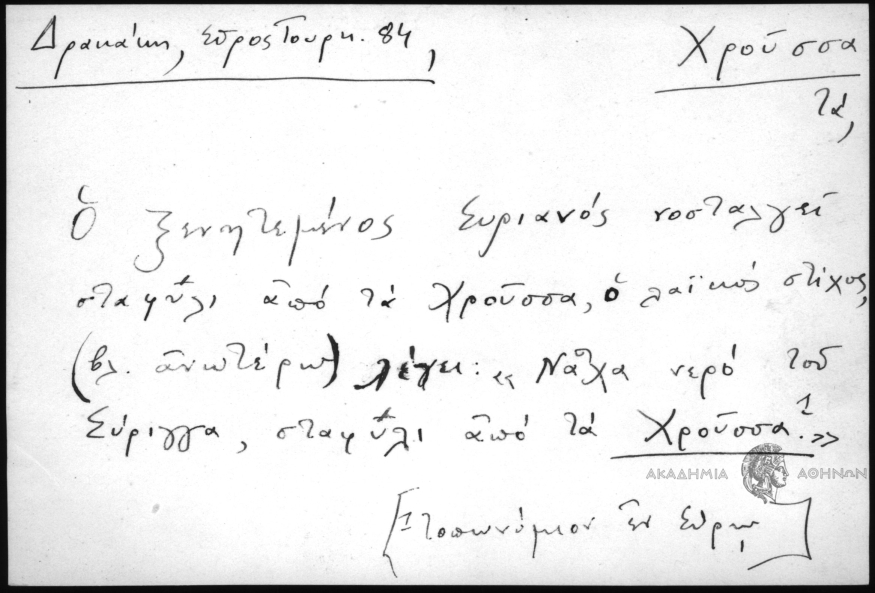 Δρακάκη, Σῦρος Τουρκ. 84,
Χροῦσσα
τά,
Ὁ ξενητεμένος Συριανός νοσταλγεῖ
σταφύλι ἀπό τά Χροῦσσα, ὁ λαϊκός στίχος,
(βλ. ἀνωτέρω) λέγει: «Νἆχα νερό τοῦ
Σύριγγα, σταφύλι ἀπό τά Χροῦσσα.¹»
ΑΚΑΔΗΜΙΑ ΑΘΗΝΩΝ
[1 τοπωνύμιον ἐν Σύρῳ]